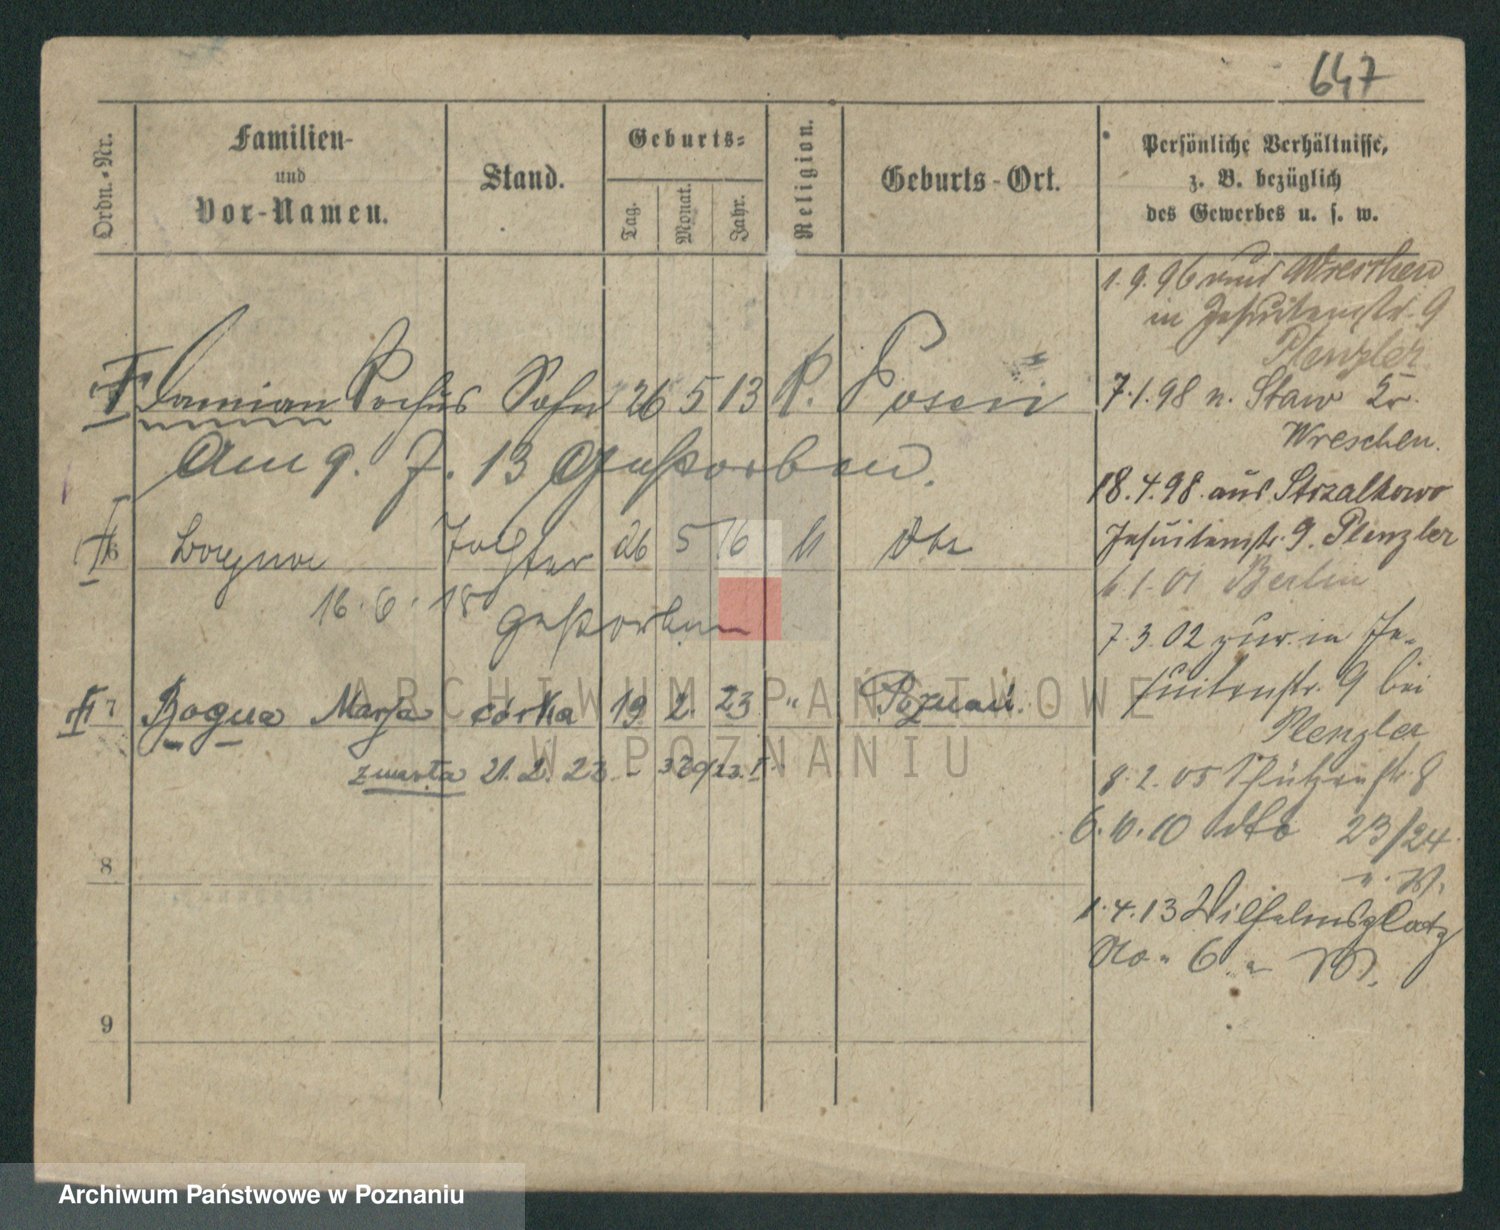 647
Ordn.-Nr.
Familien-
und
Vor-Namen.
Stand.
Geburts-
Tag.
Monat.
Jahr.
Religion.
Geburts-Ort.
Persönliche Verhältnisse,
z. B. bezüglich
des Gewerbes u. s. w.
Damian Rochus Sohn 26 5 13 K. Posen
Am 9. 7. 13 Gestorben.
6 Bogna Tochter 26 5 16 " dto
16. 6. 18 gestorben
7 Bogna Marja córka 19 2. 23 " Poznań.
zmarła 21. 2. 23. - 320/23. I.
8
9
1. 9. 96 aus Wreschen
in Jesuitenstr. 9
Plenzler
7. 1. 98 n. Staw Kr.
Wreschen.
18. 4. 98. aus Strzalkowo
Jesuitenstr. 9. Plenzler
6. 1. 01 Berlin
7. 3. 02 zur. in Je-
suitenstr. 9 bei
Plenzler
8. 2. 05 Schützenstr. 8
6. 10. 10 dto 23/24
u. W.
1. 4. 13 Wilhelmsplatz
No. 6. u. W.
ARCHIWUM PAŃSTWOWE
W POZNANIU
Archiwum Państwowe w Poznaniu